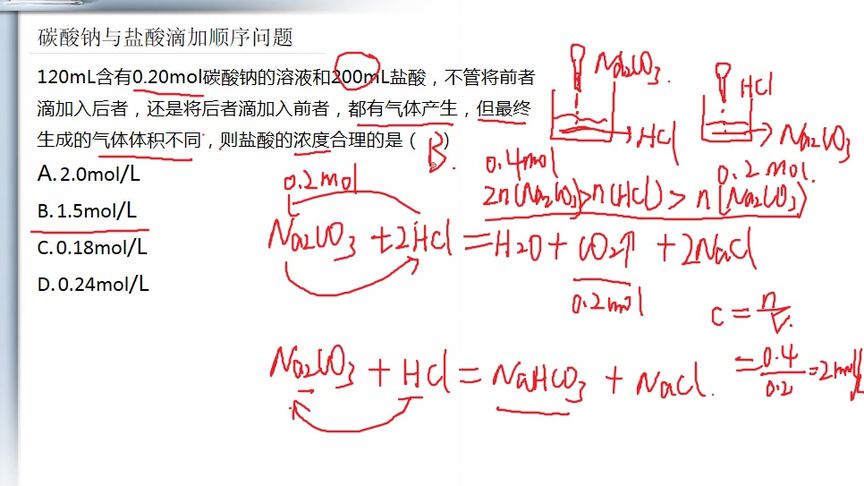 碳酸钠与盐酸滴加顺序问题
120mL含有0.20mol碳酸钠的溶液和200mL盐酸，不管将前者
滴加入后者，还是将后者滴加入前者，都有气体产生，但最终
生成的气体体积不同，则盐酸的浓度合理的是（ B. ）
A. 2.0mol/L
B. 1.5mol/L
C. 0.18mol/L
D. 0.24mol/L
Na2CO3.
HCl
HCl
Na2CO3
0.4mol
0.2mol.
2n(Na2CO3)>n(HCl)>n(Na2CO3)
0.2mol
Na2CO3+2HCl=H2O+CO2↑+2NaCl
0.2mol
c=n/V.
=0.4/0.2=2mol/L
Na2CO3+HCl=NaHCO3+NaCl.